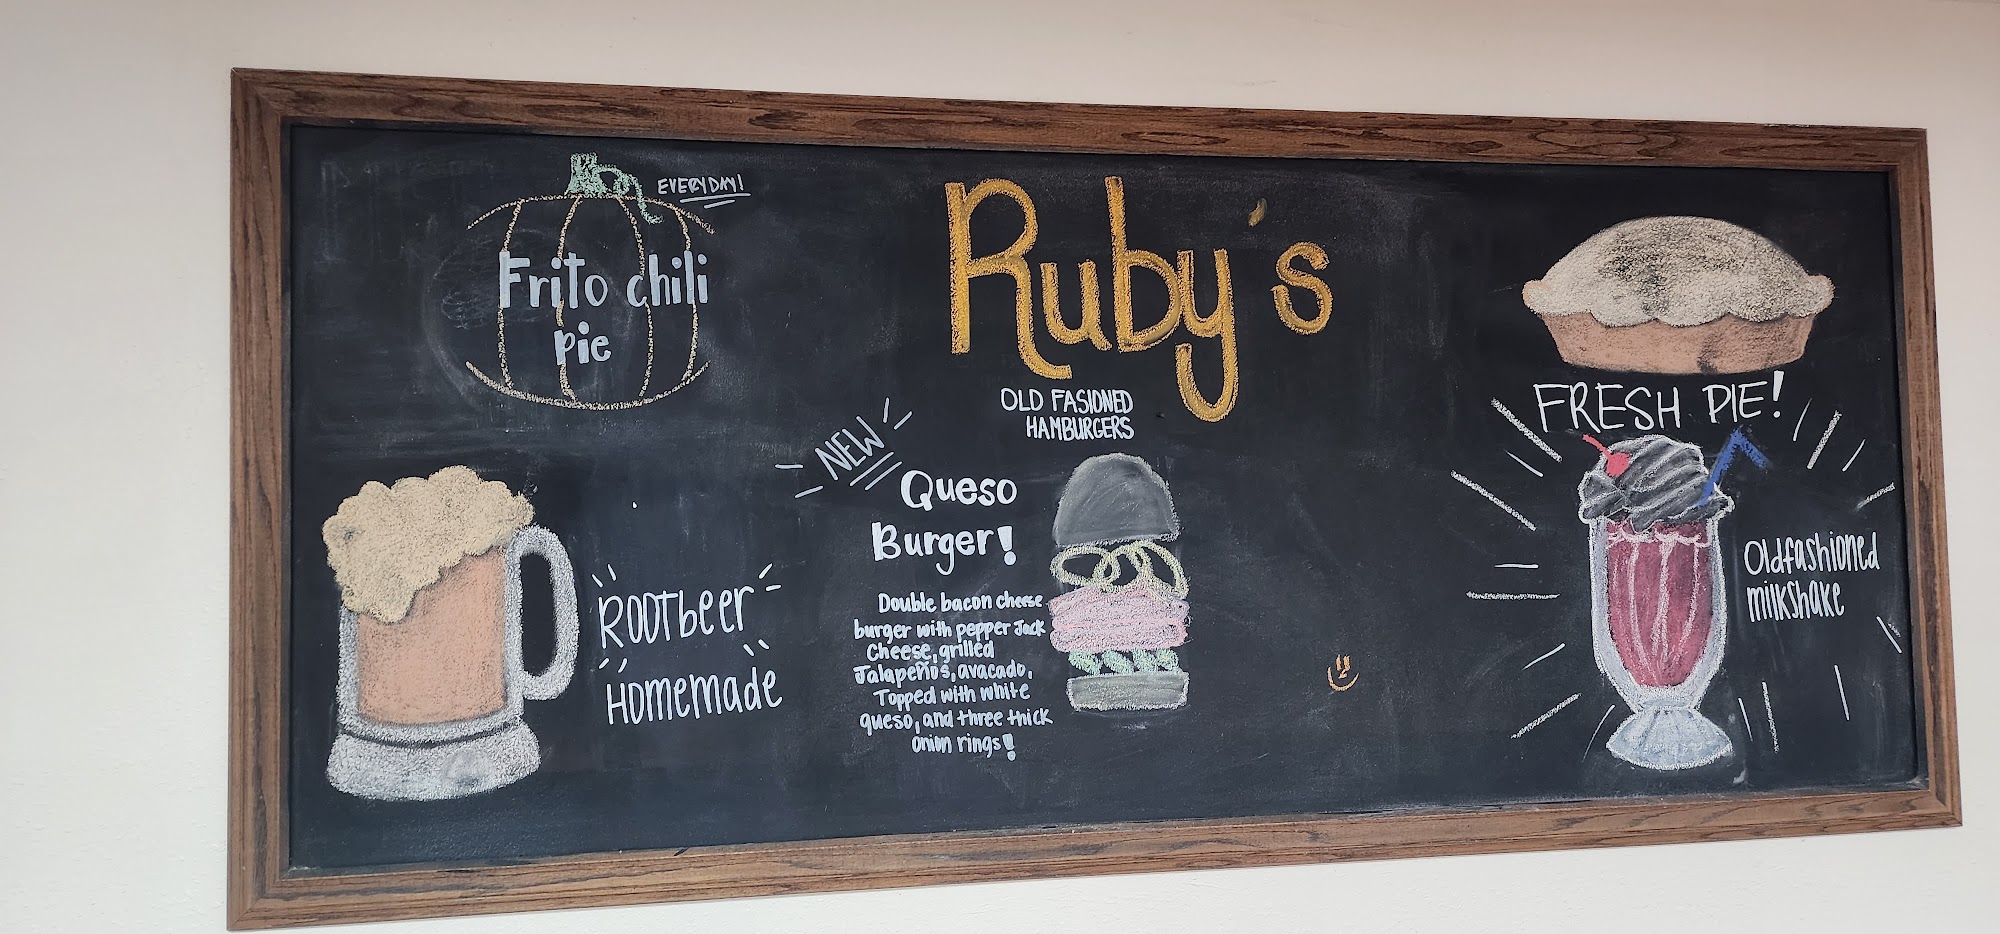 EVERYDAY!
Frito chili
pie
Ruby's
OLD FASIONED
HAMBURGERS
NEW
Queso
Burger!
Double bacon cheese
burger with pepper Jack
Cheese, grilled
Jalapeños, avacado,
Topped with white
queso, and three thick
onion rings!
ROOTbeer
HOmemade
FRESH PIE!
Oldfashioned
milkshake